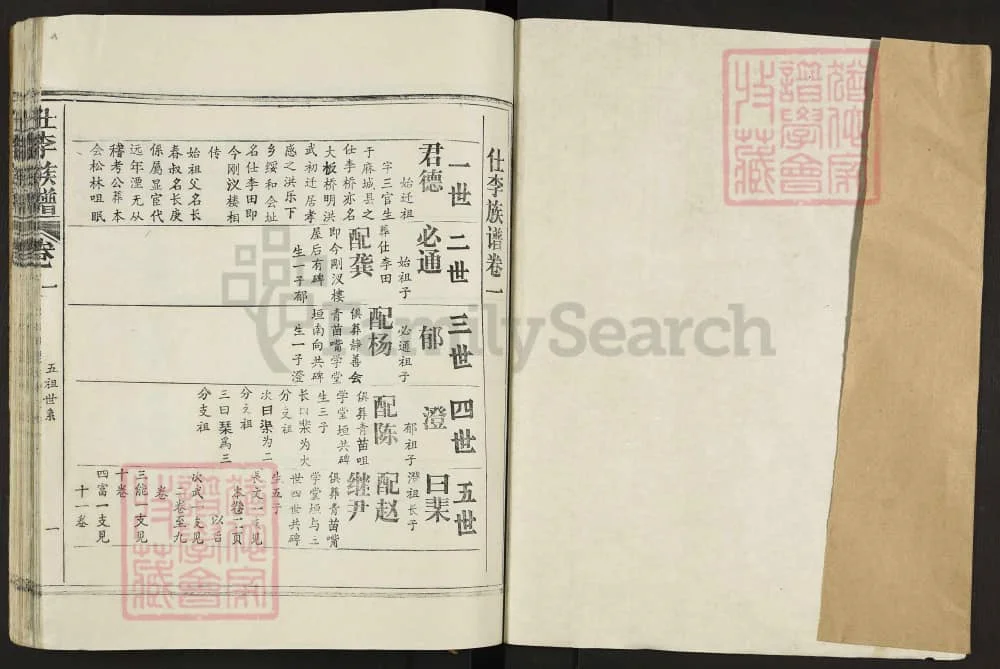 仕李族谱卷一
一世
君德
始迁祖
字三官生
于麻城县之
仕李桥亦名
大板桥明洪
武初迁居孝
感之洪乐下
乡绥和会址
名仕李田即
今刚汊楼相
传
始祖父名长
春叔名长庚
係属显宦代
远年湮无从
稽考公葬本
会松林咀眠
二世
必通
始祖子
葬仕李田
即今刚汊楼
屋后有碑
生一子郁
配龚
三世
郁
必通祖子
配杨
俱葬静善会
青苗嘴学堂
垣南向共碑
生一子澄
四世
澄
郁祖子
配陈
俱葬青苗咀
学堂垣共碑
生三子
长曰棐为大
分支祖
次曰渠为二
分支祖
三曰琹為三
分支祖
五世
曰棐
澄祖长子
配赵
继尹
俱葬青苗嘴
学堂垣与三
世四世共碑
生五子
长文一支见
本卷二页
以后
次武一支见
二卷至九
卷
三能一支见
十卷
四富一支见
十一卷
仕李族谱
卷一
五祖世系
一
FamilySearch